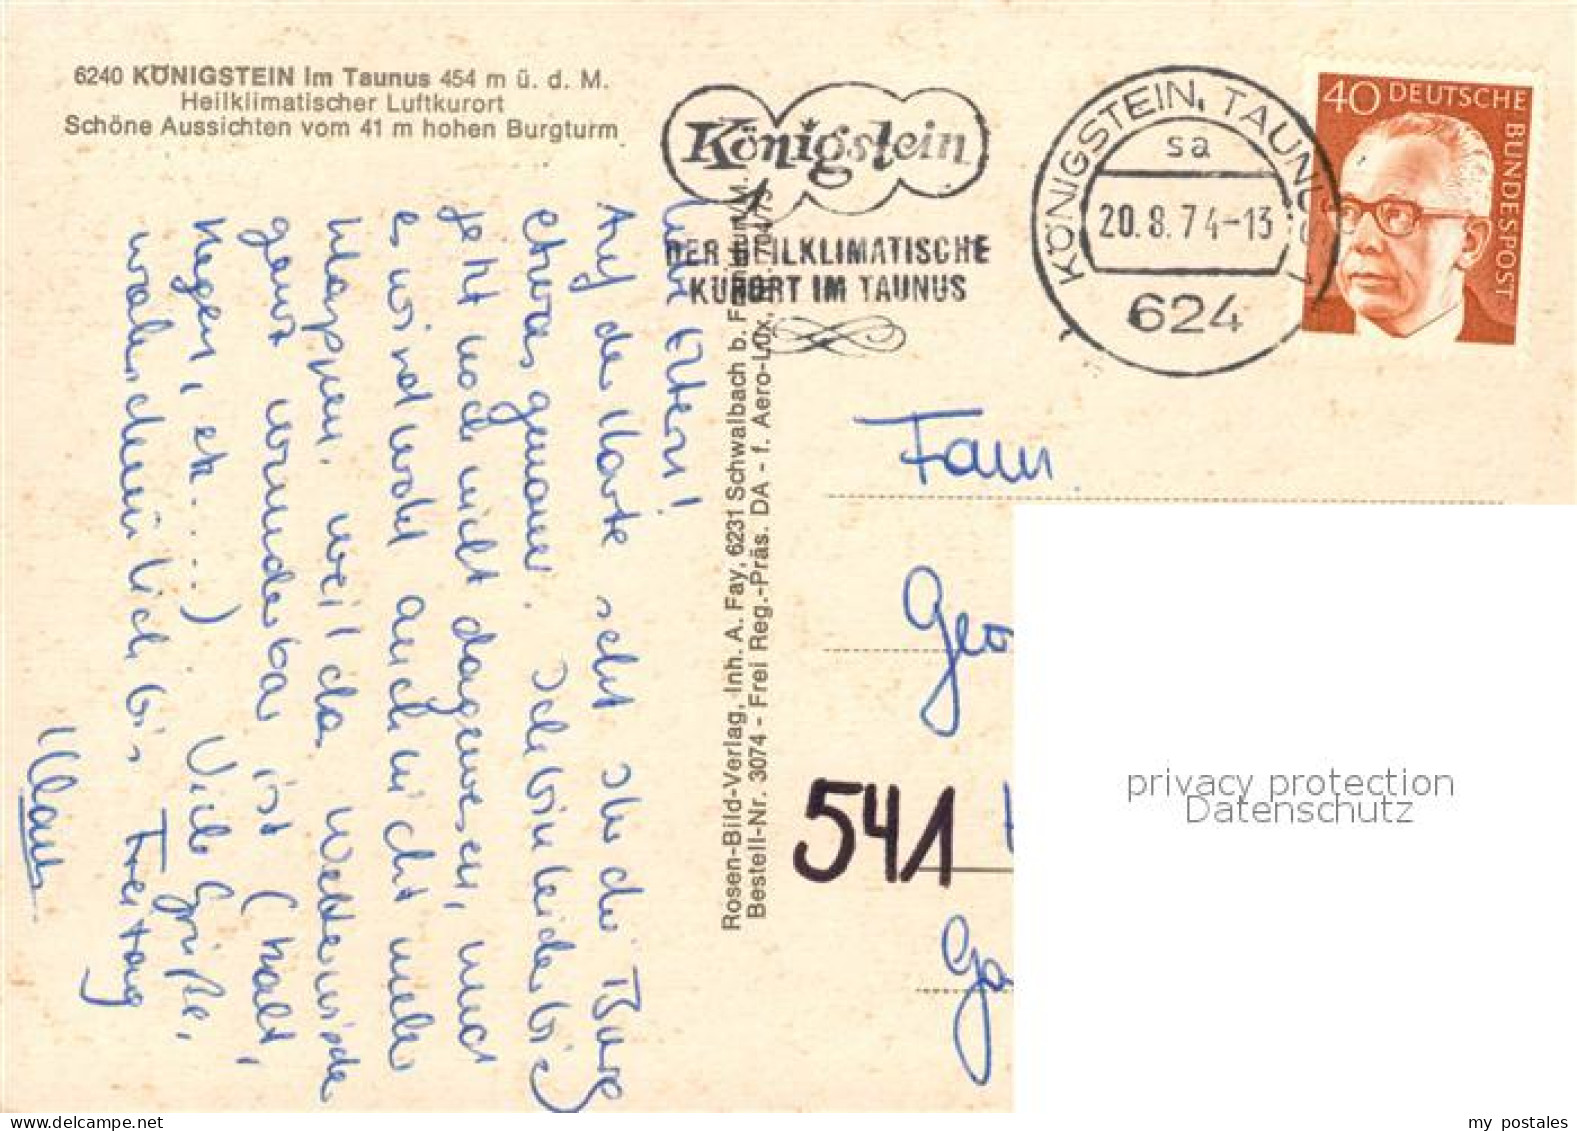 6240 KÖNIGSTEIN im Taunus 454 m ü. d. M.
Heilklimatischer Luftkurort
Schöne Aussichten vom 41 m hohen Burgturm
Königstein
DER HEILKLIMATISCHE
KURORT IM TAUNUS
KÖNIGSTEIN, TAUNUS 1
sa
20.8.74-13
624
40 DEUTSCHE
BUNDESPOST
Liebe Eltern!
Auf der Karte seht Ihr die Burg
etwas genauer. Ich bin leider bis
jetzt noch nicht dagewesen, und
es wird wohl auch nicht mehr
klappen, weil das Wetter wieder
ganz wunderbar ist (kalt,
Regen, etc....) Viele Grüße,
wahrscheinlich bis Freitag
Klaus
Rosen-Bild-Verlag, Inh. A. Fay, 6231 Schwalbach b. Frankfurt/M.
Bestell-Nr. 3074 - Frei Reg.-Präs. DA - f. Aero-Lux, 704/73
Fam.
Geo
541
Ga
privacy protection
Datenschutz
www.delcampe.net
my postales